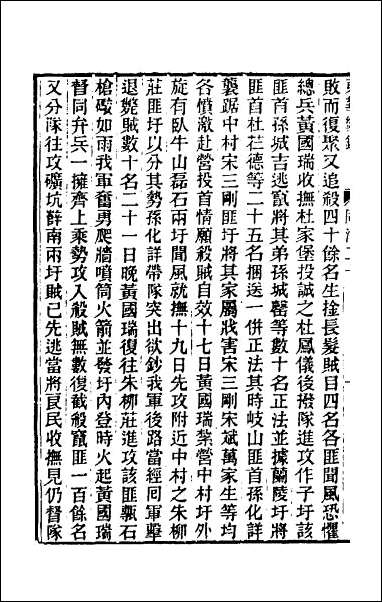 敗而復聚又追殺四十餘名生擒長髮賊目四名各匪聞風恐懼
總兵黃國瑞收撫杜家堡投誠之杜鳳儀後撥隊進攻作子圩該
匪首孫城吉逃竄將其弟孫城罄等數十名正法並據蘭陵圩將
匪首杜茌德等二十五名捆送一併正法其時岐山匪首孫化詳
襲踞中村宋三剛匪圩將其家屬戕害宋三剛宋斌萬家生等均
各憤激赴營投首情願殺賊自效十七日黃國瑞紮營中村圩外
旋有臥牛山磊石兩圩聞風就撫十九日先攻附近中村之朱柳
莊匪圩以分其勢孫化詳帶隊突出欲鈔我軍後路當經囘軍擊
退斃賊數十名二十一日晚黃國瑞復往朱柳莊進攻該匪甎石
槍礮如雨我軍奮勇爬牆噴筒火箭並發圩內登時火起黃國瑞
督同弁兵一擁齊上乘勢攻入殺賊無數復截殺竄匪一百餘名
又分隊往攻礦坑薛南兩圩賊已先逃當將良民收撫見仍督隊